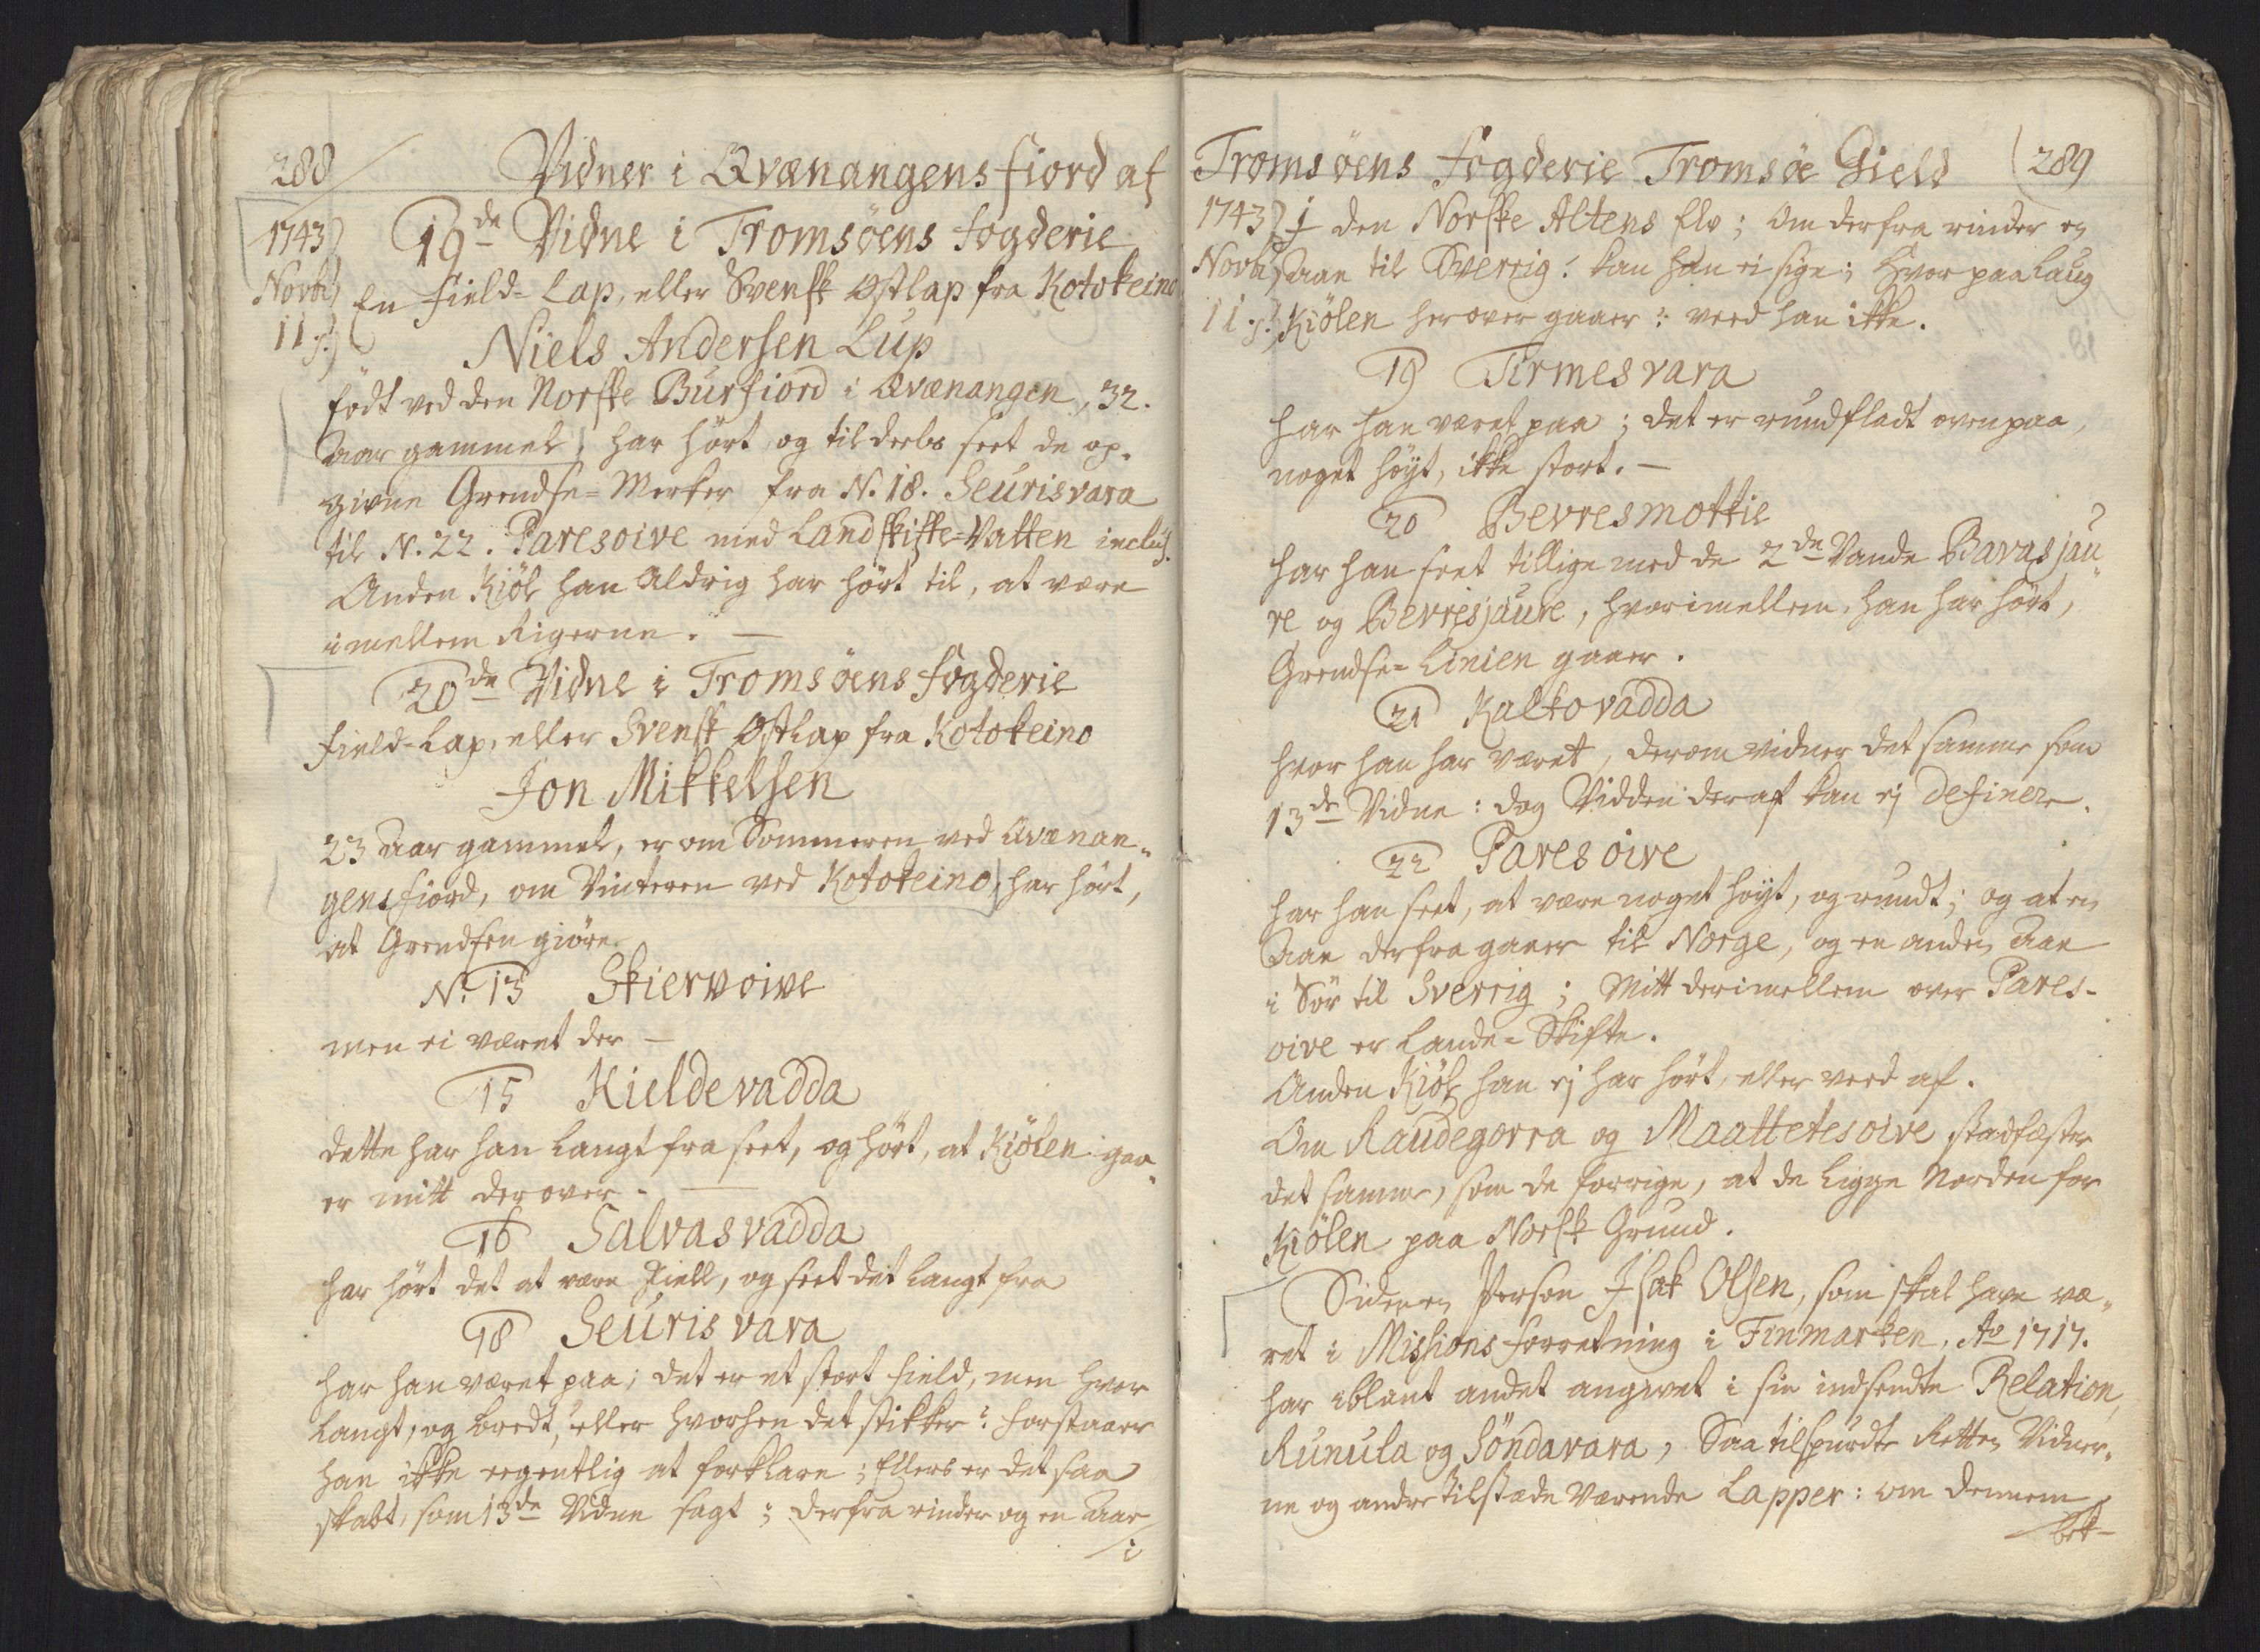 288
Vidner i Qvænangensfiord af
1743
Novbr
11 s:
19de Vidne i Tromsöens fogderie
En Field-Lap, eller Svensk Østlap fra Kotokeino
Niels Andersen Lup
født ved den Norske Burfiord i Qvænangen, 32.
Aar gammel; har hört og tildeels seet de op-
givne Grendse-Merker fra N. 18. Seurisvara
til N. 22. Paresoive med Landskifte-Vatten inclus.
Anden Kiöl han Aldrig har hört til, at være
imellem Rigerne. —
20de Vidne i Tromsöens fogderie
Field-Lap, eller Svensk Østlap fra Kotokeino
Jon Mikkelsen
23 Aar gammel, er om Sommeren ved Qvænan-
gensfiord, om Vinteren ved Kotokeino, har hört,
at Grendsen giöre
No 13 Skiervoive
men ei været der —
15 Kieldevadda
dette har han langt fra seet, og hört, at Kiölen gaa-
er mitt derover. —
16 Salvasvadda
har hört det at være Fiell, og seet det langt fra
18 Seurisvara
har han været paa; det er et stort Field, men hvor
langt, og bredt, eller hvorhen det stikker? forstaaer
han ikke eegentlig at forklare; Ellers er det saa
skabt, som 13de Vidne sagt; derfra rinder og en Aae
i
Tromsöens Fogderie Tromsöe Gield
289
1743
Novbr
11. s:
i den Norske Altens Elv; Om derfra rinder en
Aae til Sverrig? kan han ei sige; Hvor paa Laug
Kiölen herover gaaer? veed han ikke.
19 Tirmesvara
har han været paa; det er rundfladt ovenpaa,
noget höyt, ikke stort. —
20 Bevresmottie
har han seet tillige med de 2de Vande Bavasjau-
re og Bevresjaure, hvorimellem, han har hört,
Grendse-Linien gaaer.
21 Kaltovadda
hvor han har været, derom vidner det samme som
13de Vidne: dog Vidden deraf kan ej definere.
22 Paresoive
har han seet, at være noget höyt, og rundt; og at en
Aae derfra gaaer til Norge, og en anden Aae
i Sör til Sverrig; Mitt derimellem over Pares-
oive er Lande-Skifte.
Anden Kiöl han ej har hört, eller veed af.
Om Raudegorra og Maattetesoive stadfæster
det samme, som de forrige, at de ligge Norden for
Kiölen paa Norsk Grund.
Siden en Person Isak Olsen, som skal have væ-
ret i Missionsforretning i Finmarken, Ao 1717.
har iblant andet angivet i sin indsendte Relation,
Runula og Söndavara, Saa tilspurdte Retten Vidner-
ne og andre tilstæde Værende Lapper: om dennem
bek-